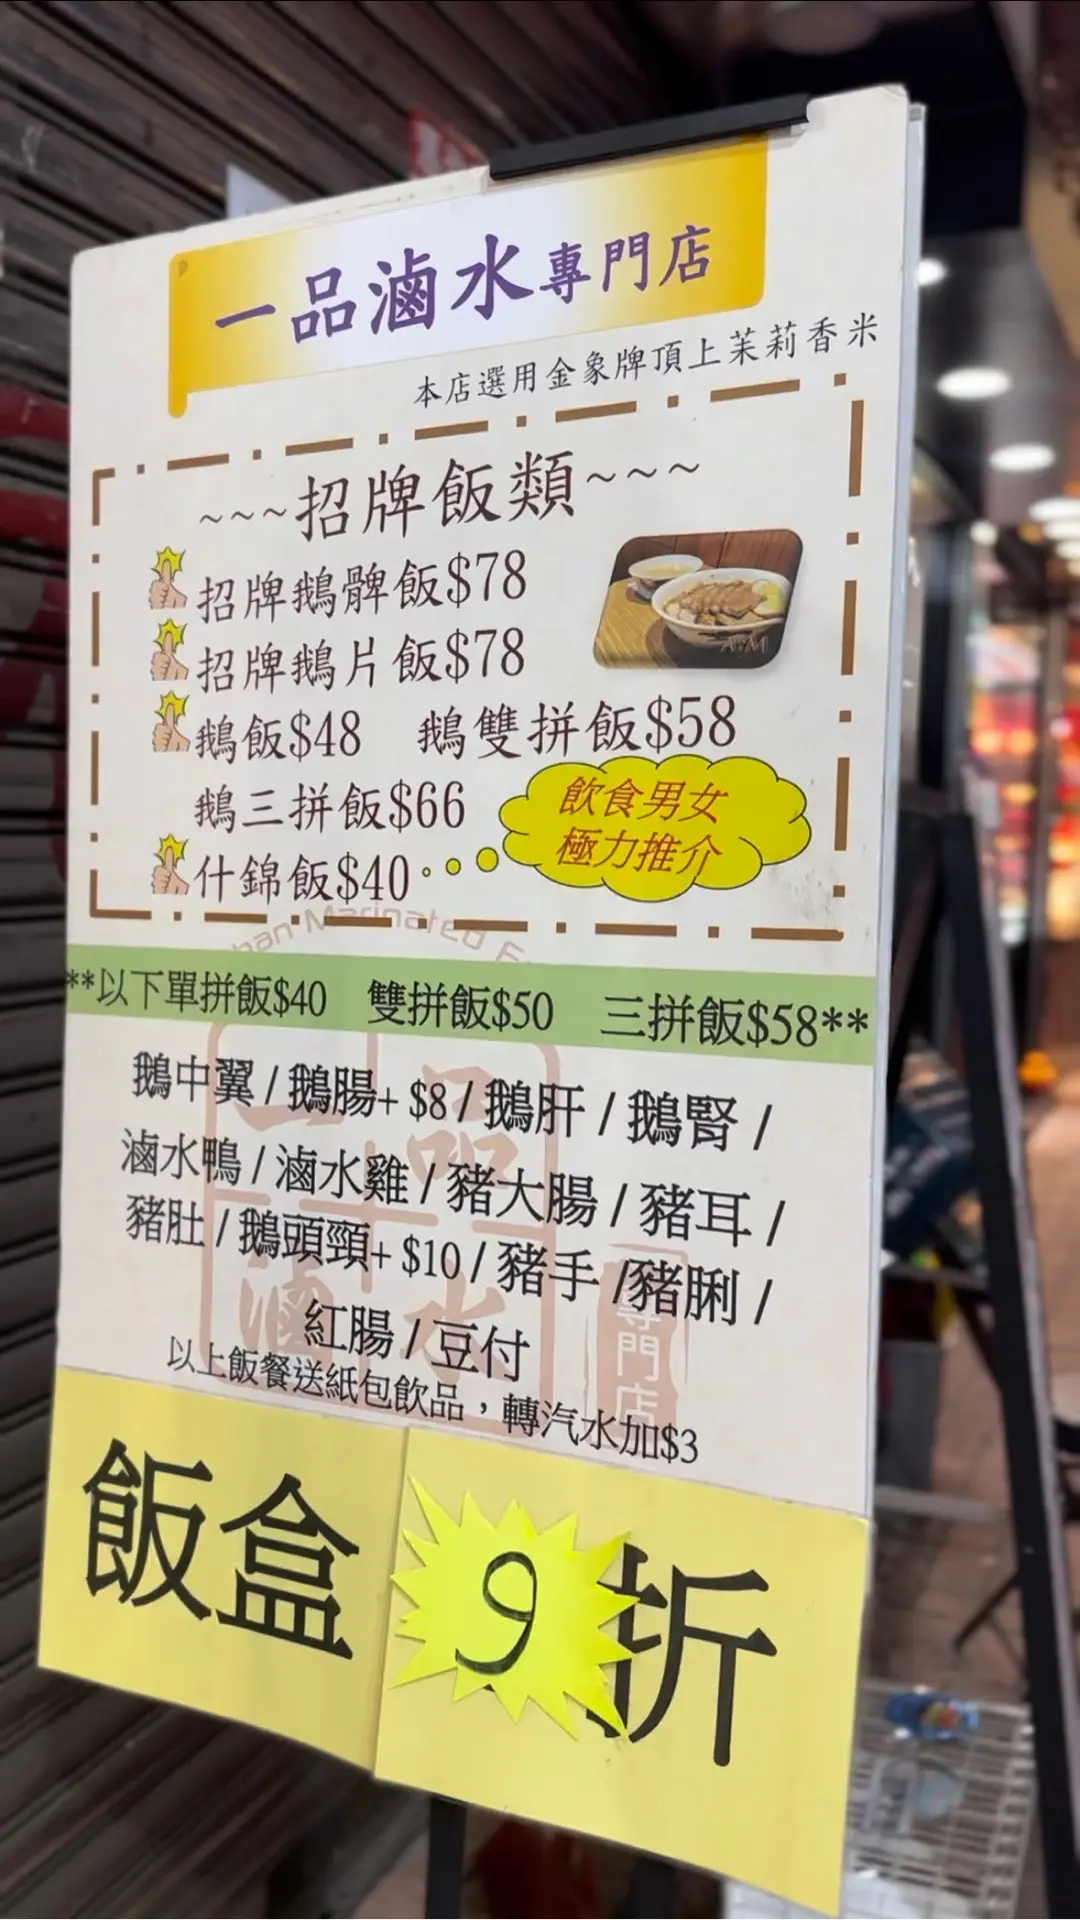 一品滷水專門店
本店選用金象牌頂上茉莉香米
~~~招牌飯類~~~
招牌鵝髀飯$78
招牌鵝片飯$78
鵝飯$48 鵝雙拼飯$58
鵝三拼飯$66
飲食男女
極力推介
什錦飯$40
han Marinated F
**以下單拼飯$40 雙拼飯$50 三拼飯$58**
鵝中翼 / 鵝腸+ $8 / 鵝肝 / 鵝腎 /
滷水鴨 / 滷水雞 / 豬大腸 / 豬耳 /
豬肚 / 鵝頭頸+ $10 / 豬手 /豬脷 /
紅腸 / 豆付
以上飯餐送紙包飲品，轉汽水加$3
一品
滷水
專門店
飯盒9折